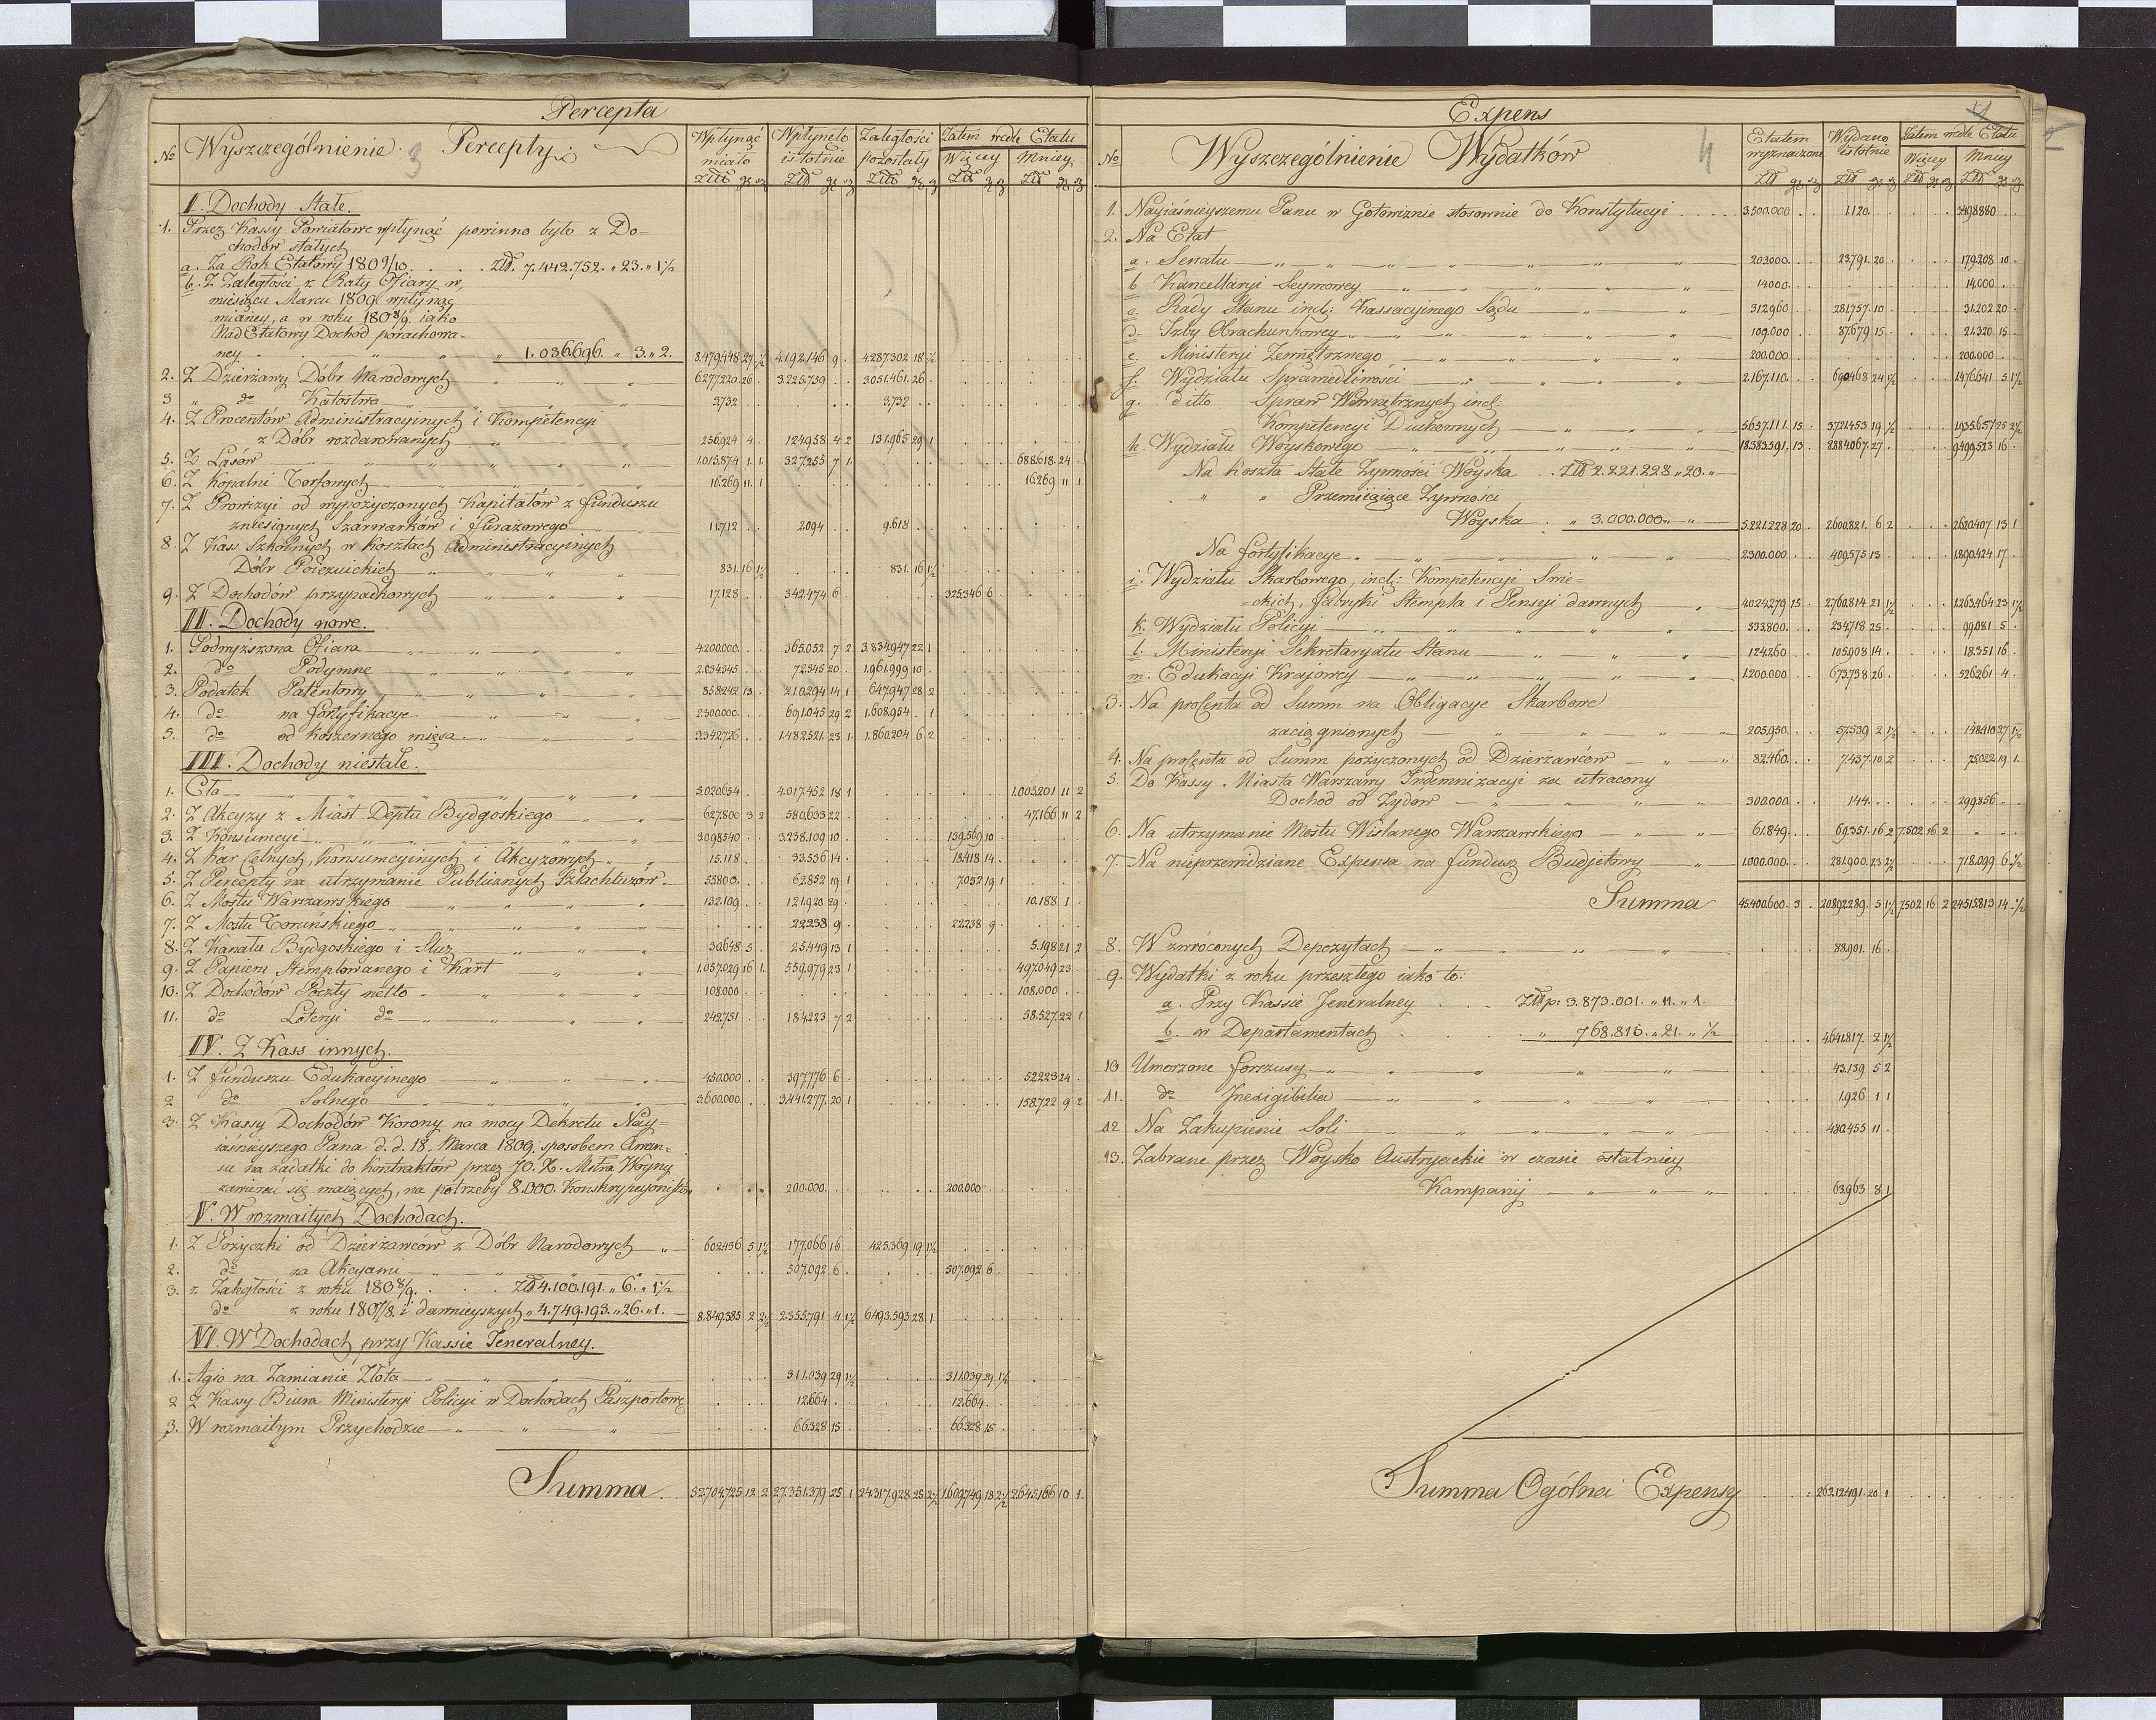 Percepta
No Wyszczególnienie Percepty 3
Wpłynąć miało Złł gr d
Wpłynęło istotnie Złł gr d
Zaległości pozostały Złł gr d
Zatem wedle Etatu
Więcey Złł gr d
Mniey Złł gr d
I. Dochody Stałe.
1. Przez Kassy Powiatowe wpłynąć powinno było z Do=
chodów stałych
a. Za Rok Etatowy 1809/10 . . Złł. 7.442.752. " 23. " 1½
b. Z Zaległości z Raty Ofiary w
miesiącu Marcu 1809 wpłynąć
mianey, a w roku 1808/9. iako
Nad Etatowy Dochód porachowa-
ney . . " " " 1.036.696. " 3. " 2. 8.479.448 27 ½ 4.192.146 9 . 4.287.302 18 ½
2. Z Dzierżawy Dóbr Narodowych " " " 6.277.220 26 . 3.225.739 . . 3.051.481 26 .
3 " do Kątostwa 3732 . . . . . 3.732 . .
4. Z Procentów Administracyinych i Kompetencyi
z Dóbr rozdarowanych " " " 256.924 4 . 124.958 4 2 131.965 29 1
5. Z Lasów " " " 1.015.874 1 1. 327.255 7 1. 688.618 24 .
6. Z Kopalni Torfowych " " " 16.269 11. 1 16.269 11 1
7. Z Prowizyi od wypożyczonych Kapitałów z funduszu
zniesionych Szarwarków i Furażowego 11.712 . . 2094 . . 9.618 . .
8. Z Kass Szkolnych w kosztach Administracyinych
Dóbr Pojezuickich " " " 831. 16 1½ . . . 831. 16 1½
9. Z Dochodów przypadkowych " " " 17.128 . . 342.474 6 . 325.346 6 .
II. Dochody nowe.
1. Podwyższona Ofiara " " " 4.200.000. . . 365.052 7 2 3.834.947 22 1
2. do Podymne " " " 2.034.345 . . 72.345 20 . 1.961.999 10 .
3. Podatek Patentowy " " " 858.242 13 . 210.294 14 1 647.947 28 2
4. do na fortyfikacye " " " 2.300.000. . . 691.045 29 2 1.608.954 . 1
5. do od koszernego mięsa. " " " 3.342.726 . . 1.482.521. 23 1. 1.860.204 6 2
III. Dochody niestałe.
1. Cła " " " 5.020.654 . . 4.017.452 18 1 1.003.201 11 2
2. Z Akcyzy z Miast Deptu Bydgoskiego " " 627.800 3 2 580.633 22 . 47.166 11 2
3. Z Konsumcyi " " " 3.098.540 . . 3.238.109 10 . 139.569 10 .
4. Z Kar Celnych, Konsumcyinych i Akcyzowych " " 15.118 . . 33.536 14 . 18.418 14 .
5. Z Percepty na utrzymanie Publicznych Szlachtuzów. 55.800. . . 62.852 19 1 7.052 19 1
6. Z Mostu Warszawskiego " " " 132.109 . . 121.920 29 . 10.188 1 .
7. Z Mostu Toruńskiego " " " . . . 22.238 9 . 22.238 9 .
8. Z Kanału Bydgoskiego i Sluz " " 30.648 5 . 25.449 13 1 5.198 21 2
9. Z Papieru Stemplowanego i Kart " " 1.057.029 16 1. 559.979 23 1 497.049 23 .
10. Z Dochodów Poczty netto " " " 108.000 . . . . . 108.000 . .
11. do Loteryi do " " " 242.751 . . 184.223 7 2 58.527. 22 1
IV. Z Kass innych.
1. Z funduszu Edukacyinego " " " 450.000 . . 397.776 6 . 52.223 24 .
2 do Solnego " " " 3.600.000. . . 3.441.277. 20 1 158.722 9 2
3. Z Kassy Dochodów Korony na mocy Dekretu Nay=
iaśnieyszego Pana d. d. 18. Marca 1809. sposobem Awan=
su na zadatki do kontraktów przez JO. X. Mstra Woyny
zawierać się maiących, na potrzeby 8.000. Konskrypcyonistów . . . 200.000. . . . . . 200.000 . .
V. W rozmaitych Dochodach.
1. Z Pożyczki od Dzierżawców z Dóbr Narodowych " 602.436 5 1½ 177.066 16 . 425.369 19 1½
2. do na Akcyami " " . . . 507.092 6 . . . . 507.092 6 .
3. z Zaległości z roku 1808/9. . . Złł 4.100.191. " 6. " 1½
do z roku 1807/8. i dawnieyszych " 4.749.193. " 26. " 1. 8.849.385 2 2½ 2.355.791 4 1½ 6.493.593 28 1
VI. W Dochodach przy Kassie Jeneralney.
1. Agio na Zamianie Złota " " " . . . 311.039 29 1½ . . . 311.039 29 1½
2 Z Kassy Biura Ministeryi Policyi w Dochodach Paszportowe . . . 12.664 . . . . . 12.664. . .
3. W rozmaitym Przychodzie " " " . . . 66.328 15 . . . . 66.328 15 .
Summa . . 52.704.725 12 2 27.351.379 25 1 24.317.928 25 2½ 1.609.749 18 2½ 2.645.166 10 1.
Expens
No Wyszczególnienie Wydatków 4
Etatem wyznaczone Złł gr d
Wydano istotnie Złł gr d
Zatem wedle Etatu
Więcey Złł gr d
Mniey Złł gr d
1. Nayiaśnieyszemu Panu w Gotowiznie stosownie do Konstytucyi . . . 3.500.000 . . 1.120. . . . . . 3.498.880 . .
2. Na Etat
a. Senatu " " " 203.000. . . 23.791. 20 . . . . 179.208 10 .
b Kancellaryi Seymowey " " " 14.000 . . . . . . . . 14.000 . .
c. Rady Stanu incl: Kassacyinego Sądu " " 312.960 . . 281.757. 10 . . . . 31.202 20 .
d. Izby Obrachunkowey " " " 109.000 . . 87.679 15 . . . . 21.320 15 .
e. Ministeryi Zewnętrznego " " " 200.000 . . . . . . . . 200.000 . .
f. Wydziału Sprawiedliwości " " " 2.167.110. . . 690.468 24 1½ . . . 1.476.641 5 1½
g. ditto Spraw Wewnętrznych incl:
Kompetencyi Duchownych " " 5.657.111. 15 . 3.721.453 19 ½ . . . 1.935.657 25 2½
h. Wydziału Woyskowego " " " 18.383.591. 13 . 8.884.067. 27 . . . . 9.499.523 16 .
Na koszta Stałe Żywności Woyska . Złł 2.221.228 " 20. "
" " Przemiiaiące Żywności
Woyska . . " 3.000.000. " " 5.221.228 20 . 2.600.821. 6 2 . . . 2.620.407 13 1
Na fortyfikacye " " " 2.300.000 . . 409.575 13 . . . . 1.890.424 17 .
i. Wydziału Skarbowego, incl: Kompetencyi Smie=
=ckich, Fabryki Stempla i Pensyi dawnych " 4.024.279 15 . 2.760.814 21 1½ . . . 1.263.464 23 1½
k. Wydziału Policyi " " " 333.800. . . 234.718 25 . . . . 99.081 5 .
l. Ministeryi Sekretaryatu Stanu " " " 124.260 . . 105.908 14 . . . . 18.351 16 .
m. Edukacyi Krajowey " " " 1.200.000 . . 673.738 26 . . . . 526.261 4 .
3. Na procenta od Summ na Obligacye Skarbowe
zaciągnionych " " 205.950. . . 57.539 2 1½ . . . 148.410 27 1½
4. Na procenta od Summ pożyczonych od Dzierżawców " " 82.460. . . 7.437. 10 2 . . . 75.022 19 1.
5. Do Kassy Miasta Warszawy Indemnizacyi za utracony
Dochód od Żydów " " 300.000. . . 144. . . . . . 299.856 . .
6. Na utrzymanie Mostu Wiślanego Warszawskiego " " 61.849. . . 69.351. 16 2 7.502 16 2 " . .
7. Na nieprzewidziane Expensa na fundusz Budjetowy " 1.000.000. . . 281.900. 23 2½ . . . 718.099 6 ½
Summa 45.400.600. 3 . 20.892.289. 5 1½ 7.502 16 2 24.515.813 14 ½
8. W zwróconych Depozytach " " " . . . 83.901. 16 .
9. Wydatki z roku przeszłego iako to:
a. Przy Kassie Jeneralney . . Złłp: 3.873.001. " 11. " 1.
b. w Departamentach . . . " 768.815. " 21. " ½ . . . 4.641.817. 2 1½
10 Umorzone forszusy " " " . . . 43.139 5 2
11. do Inexigibilia " " " . . . 1.926 1 1
12 Na Zakupienie Soli " " " . . . 480.455 11 .
13. Zabrane przez Woysko Austryackie w czasie ostatniey
Kampanij " " " . . . 63.963 8 1
Summa Ogólna Expensy . . . 26.212.491. 20 1